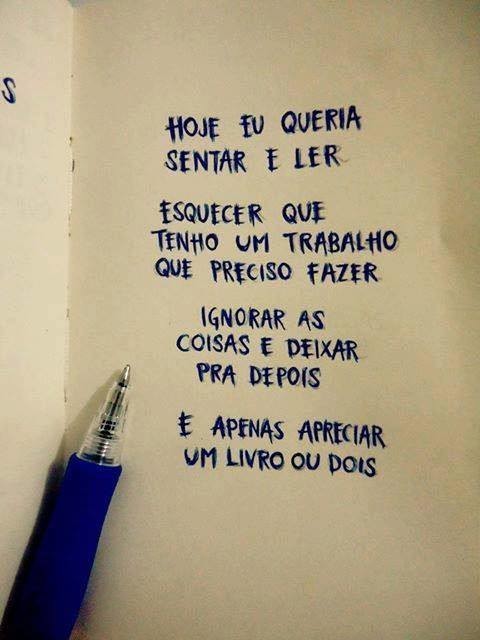 S
HOJE EU QUERIA
SENTAR E LER
ESQUECER QUE
TENHO UM TRABALHO
QUE PRECISO FAZER
IGNORAR AS
COISAS E DEIXAR
PRA DEPOIS
E APENAS APRECIAR
UM LIVRO OU DOIS